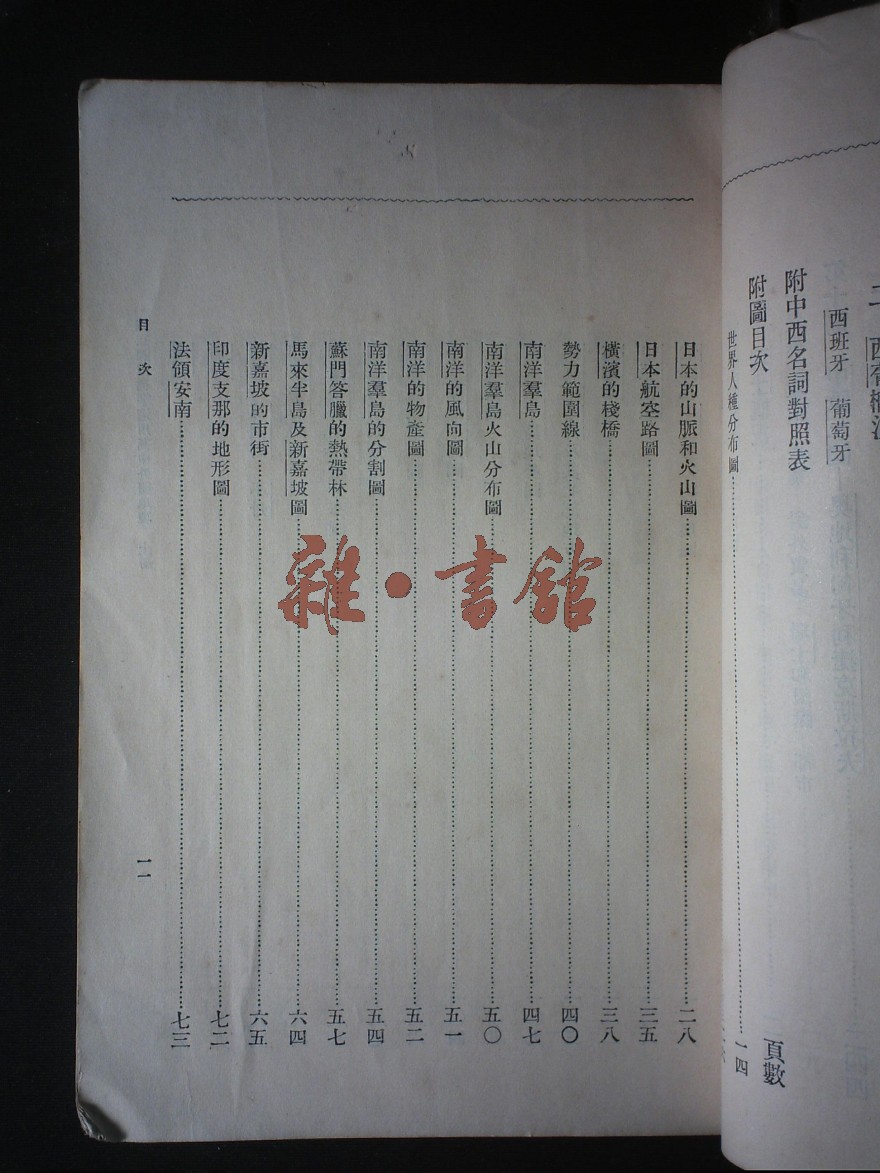 西班牙 葡萄牙
附中西名詞對照表
附圖目次 頁數
世界人種分布圖 一四
日本的山脈和火山圖 二八
日本航空路圖 三五
橫濱的棧橋 三八
勢力範圍線 四〇
南洋羣島 四七
南洋羣島火山分布圖 五〇
南洋的風向圖 五一
南洋的物產圖 五二
南洋羣島的分割圖 五四
蘇門答臘的熱帶林 五七
馬來半島及新嘉坡圖 六四
新嘉坡的市街 六五
印度支那的地形圖 七二
法領安南 七三
目次 一一
雜·書館